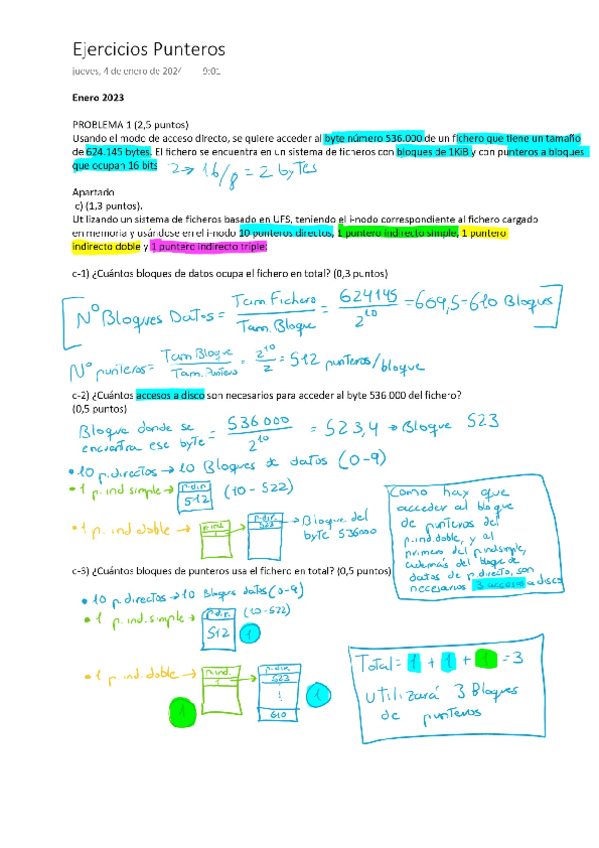 Ejercicios Punteros
jueves, 4 de enero de 2024 9:01
Enero 2023
PROBLEMA 1 (2,5 puntos)
Usando el modo de acceso directo, se quiere acceder al byte número 536.000 de un fichero que tiene un tamaño
de 624.145 bytes. El fichero se encuentra en un sistema de ficheros con bloques de 1KiB y con punteros a bloques
que ocupan 16 bits
2 → 16/8 = 2 bytes
Apartado
c) (1,3 puntos).
Utilizando un sistema de ficheros basado en UFS, teniendo el i-nodo correspondiente al fichero cargado
en memoria y usándose en el i-nodo 10 punteros directos, 1 puntero indirecto simple, 1 puntero
indirecto doble y 1 puntero indirecto triple:
c-1) ¿Cuántos bloques de datos ocupa el fichero en total? (0,3 puntos)
Nº Bloques Datos = Tam. Fichero / Tam. Bloque = 624145 / 2^10 = 609,5 = 610 Bloques
Nº punteros = Tam Bloque / Tam. Puntero = 2^10 / 2 = 512 punteros/bloque
c-2) ¿Cuántos accesos a disco son necesarios para acceder al byte 536 000 del fichero?
(0,5 puntos)
Bloque donde se
encuentra ese byte = 536000 / 2^10 = 523,4 → Bloque 523
• 10 p.directos → 10 Bloques de datos (0-9)
• 1 p. ind simple → p.dir. 512 (10-522)
• 1 p. ind doble → p.ind. 1 → p.dir. 523 → Bloque del
byte 536000
Como hay que
acceder al bloque
de punteros del
p.ind.doble, y al
primero del p.indsimple,
además del bloque de
datos de p.directo, son
necesarios 3 accesos a disco
c-3) ¿Cuántos bloques de punteros usa el fichero en total? (0,5 puntos)
• 10 p.directos → 10 Bloques datos (0-9)
• 1 p.ind.simple → p.dir. 512 (10-522) 1
• 1 p. ind.doble → p.ind. 1 → p.dir. 523 ⋮ 610
1 1
Total = 1 + 1 + 1 = 3
Utilizará 3 Bloques
de punteros